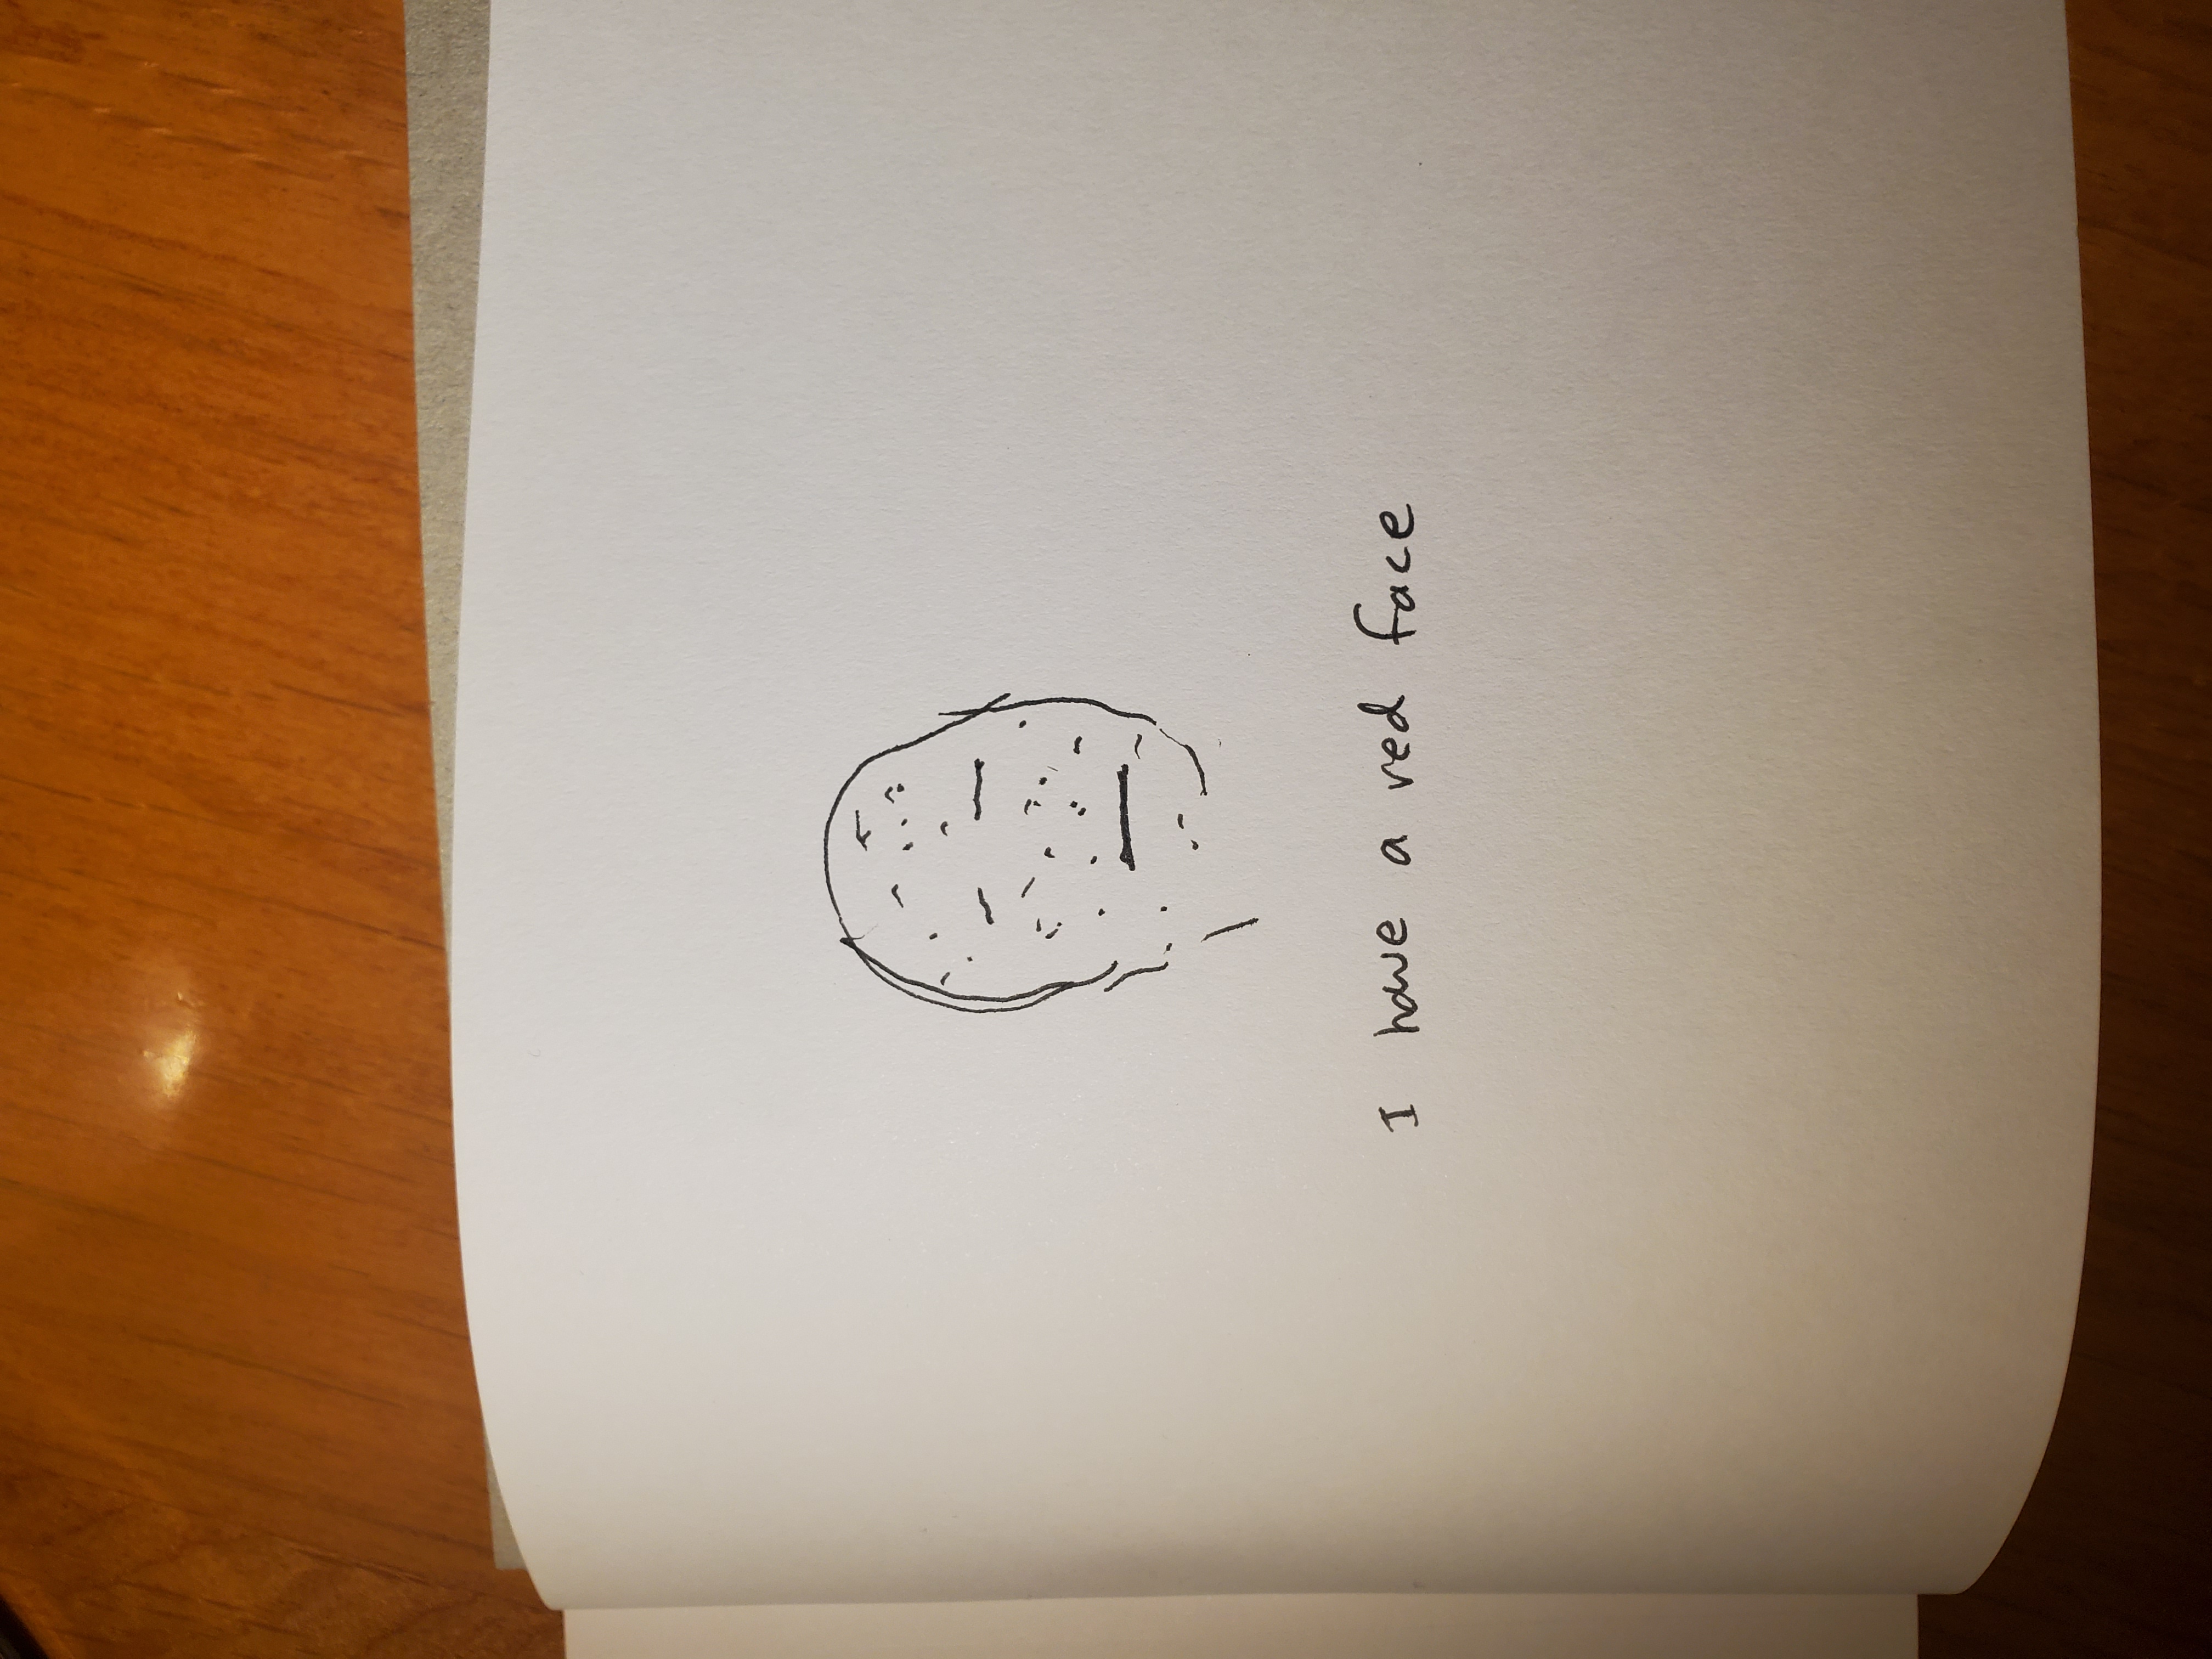 I have a red face